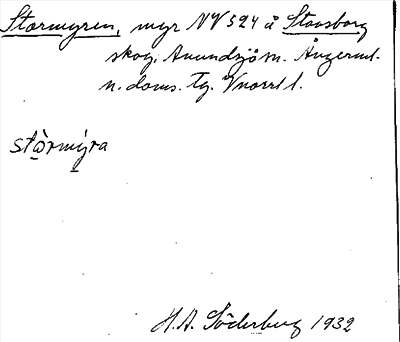 Starmyren, myr NV 524 å Stavsborg
skog, Anundsjö sn. Ångerml.
n. doms. Tg. Vnorrl l.
stärmýra
H. A. Söderberg 1932